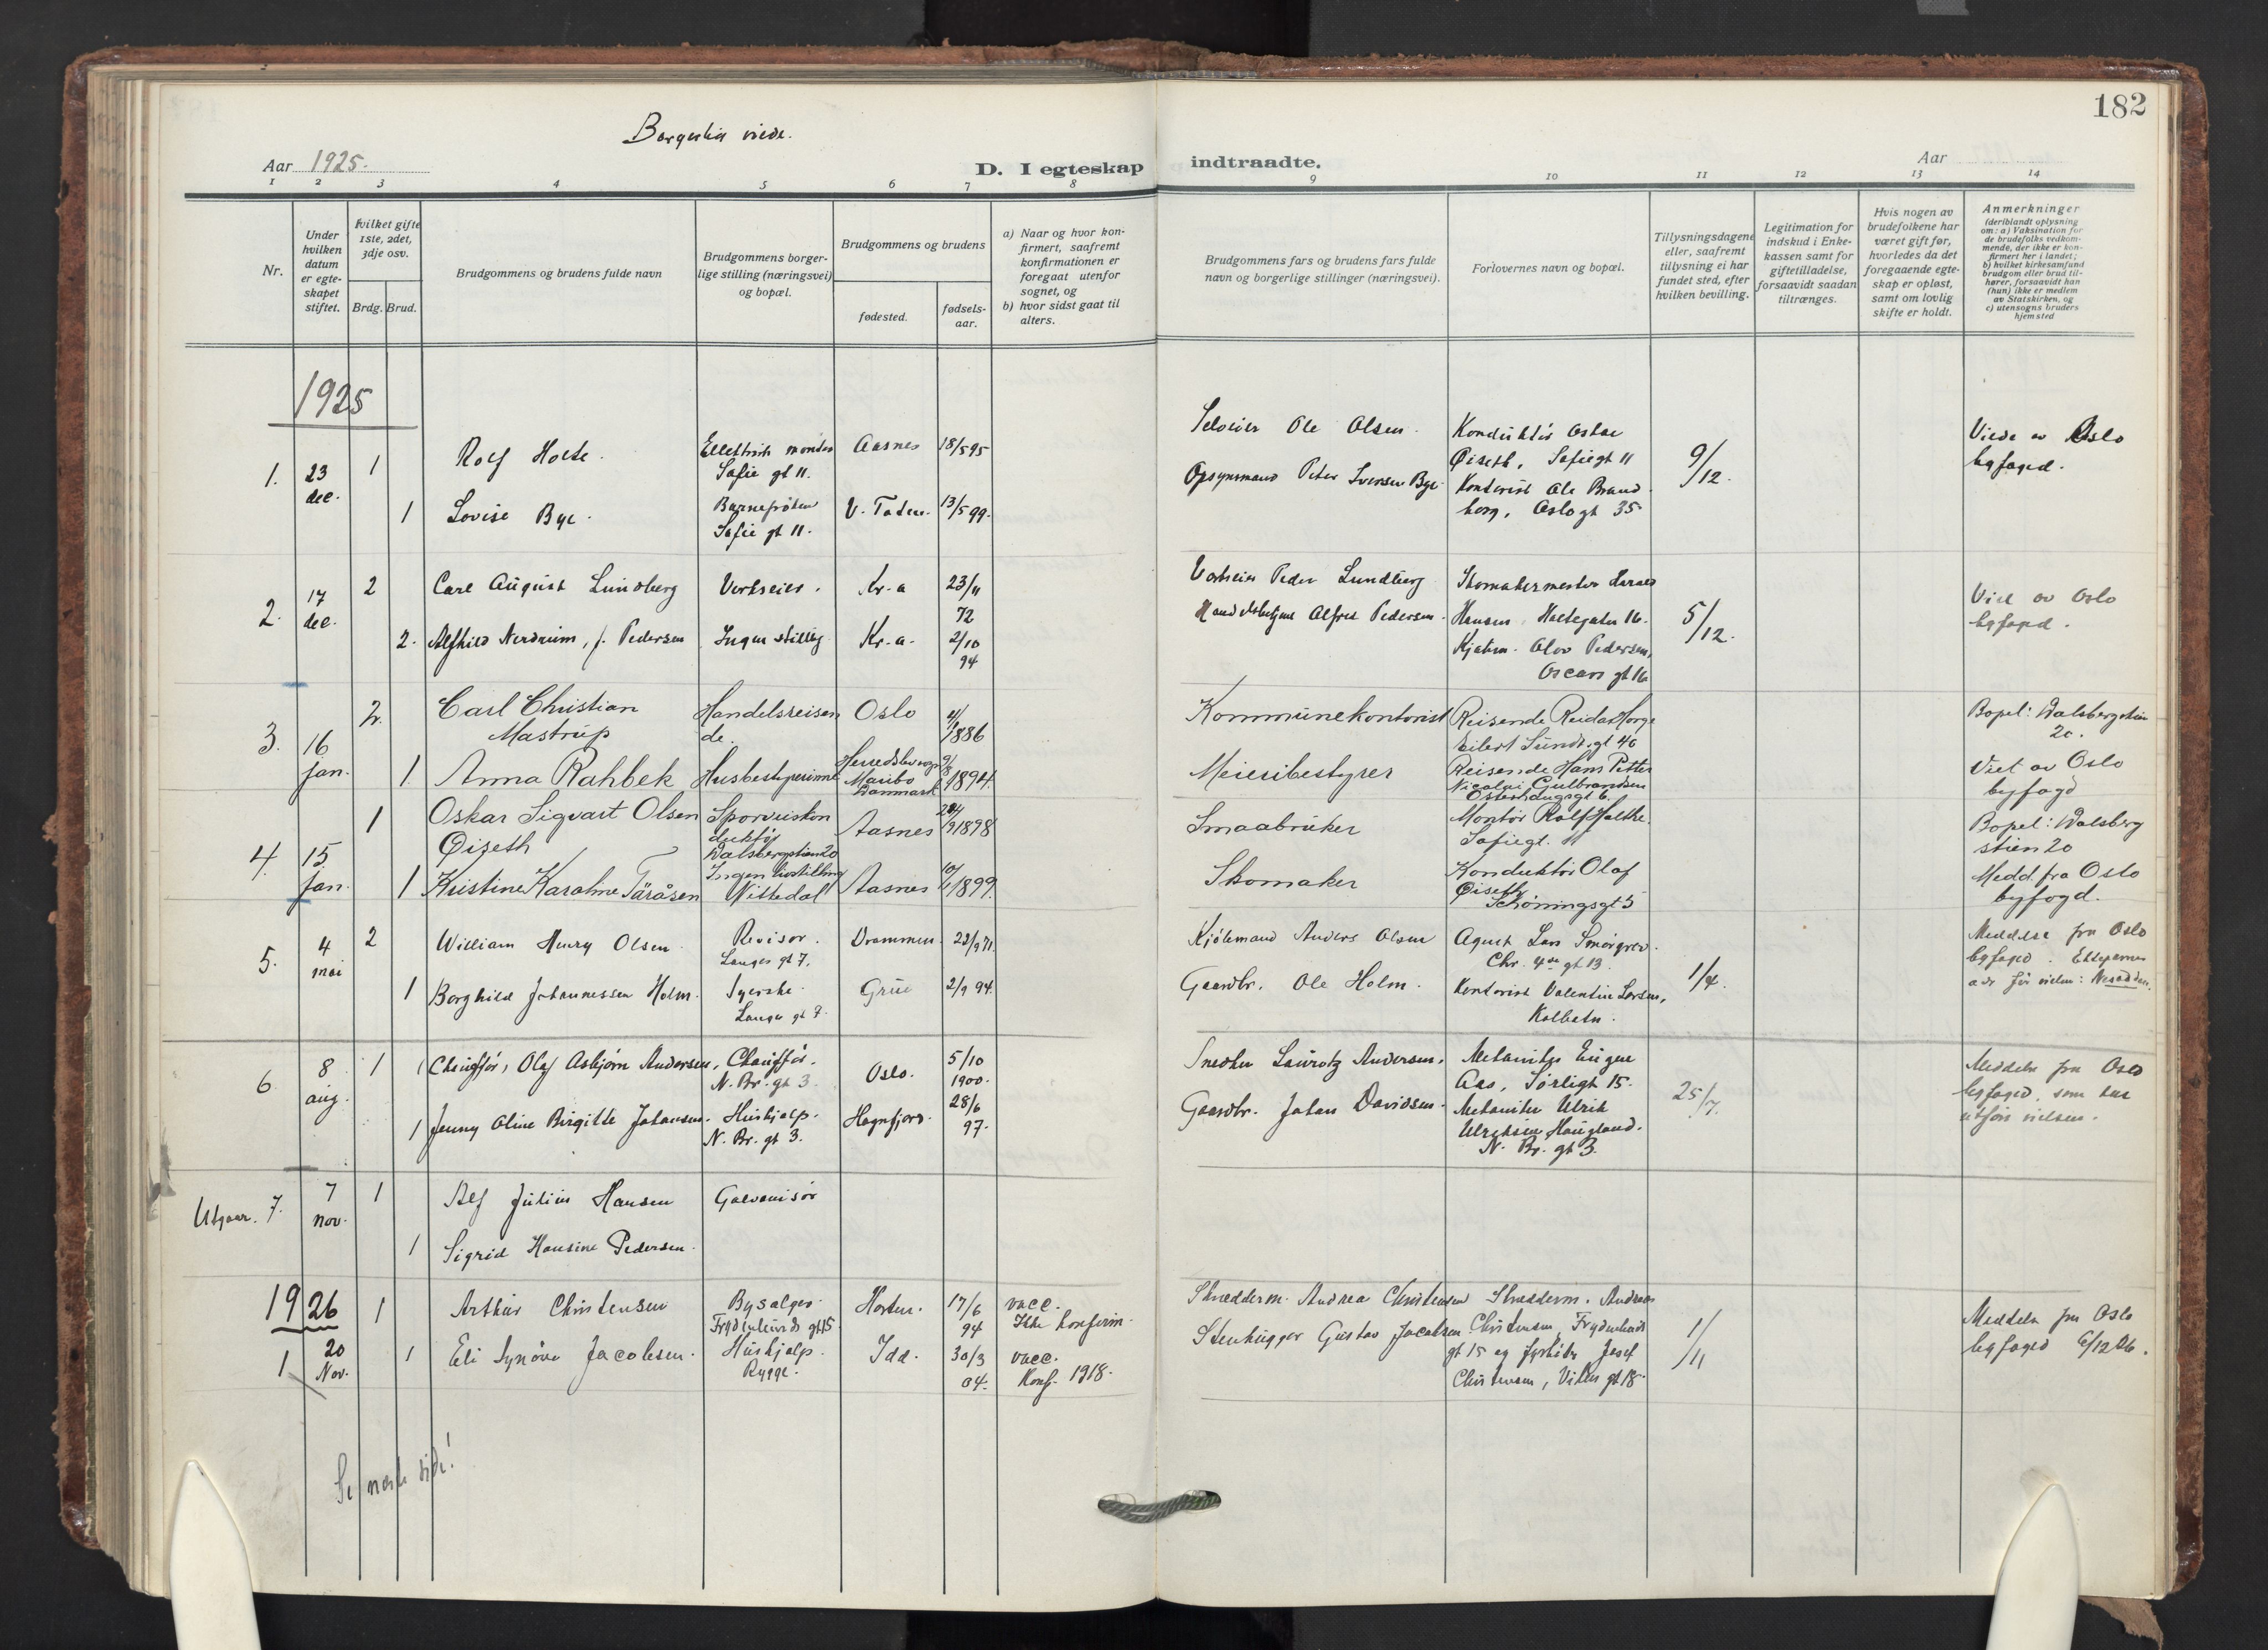 182
Borgerlig viede.
Aar 1925.
D. I egteskap indtraadte.
Aar
1 2 3 4 5 6 7 8 9 10 11 12 13 14
Nr.
Under
hvilken
datum
er egte-
skapet
stiftet.
Hvilket gifte
1ste, 2det,
3dje osv.
Brdg. Brud.
Brudgommens og brudens fulde navn
Brudgommens borger-
lige stilling (næringsvei)
og bopæl.
Brudgommens og brudens
fødested.
fødsels-
aar.
a) Naar og hvor kon-
firmert, saafremt
konfirmationen er
foregaat utenfor
sognet, og
b) hvor sidst gaat til
alters.
Brudgommens fars og brudens fars fulde
navn og borgerlige stillinger (næringsvei).
Forlovernes navn og bopæl.
Tillysningsdagene
eller, saafremt
tillysning ei har
fundet sted, efter
hvilken bevilling.
Legitimation for
indskud i Enke-
kassen samt for
giftetilladelse,
forsaavidt saadan
tiltrænges.
Hvis nogen av
brudefolkene har
været gift før,
hvorledes da det
foregaaende egte-
skap er opløst,
samt om lovlig
skifte er holdt.
Anmerkninger
(deriblandt oplysning
om: a) Vaksination for
de brudefolks vedkom-
mende, der ikke er kon-
firmert her i landet;
b) hvilket kirkesamfund
brudgom eller brud til-
hører, forsaavidt han
(hun) ikke er medlem
av Statskirken, og
c) utensogns bruders
hjemsted
1925
1. 23 dec. 1 Rolf Holte. Elektrisk montør Sofie gt 11. Aasnes 18/5 95
Selveier Ole Olsen. Konduktør Oskar Øiseth, Sofiegt 11 9/12. Viede av Oslo byfoged.
1 Lovise Bye. Barnefrøken Sofie gt 11. V. Toten. 13/5 99.
Opsynsmand Peter Iversen Bye. Kontorist Ole Brand borg, Oslogt 35
2. 17 dec. 2 Carl August Lundberg Verkseier. Kr.a 23/11 72
Verkseier Peder Lundberg Skomakermester
Hansen, Holtegaten 16. 5/12. Viet av Oslo byfoged.
2. Alfhild Nerdrum, f. Pedersen Ingen stilling Kr.a. 2/10 94
Handelsbetjent Alfred Pedersen. Kjøbm. Olav Pedersen, Oscars gt 16
3. 16 jan. 2. Carl Christian Mastrup Handelsreisen de. Oslo 4/1 1886
Kommunekontorist Reisende Reidar Horge Eilert Sundts gt 40 Bopel: Valsbergstien 20.
1. Anna Rahbek Husbestyrerinne Maribo Danmark 9/8 1894.
Meieribestyrer Reisende Hans Petter Nicolai Gulbrandsen Viet av Oslo byfogd
4. 15 jan. 1 Oskar Sigvart Olsen Øiseth Sporveiskon duktør Valsbergstien 20 Aasnes 1898
Smaabruker Montør Rolf Holthe. Sofiegt. 11 Bopel: Valsberg stien 20
1 Kristine Karoline Taråsen Ingen livstilling Nittedal Aasnes 10/1 1899.
Skomaker Konduktør Olaf Øiseth Schøningsgt 5 Medd. fra Oslo byfogd.
5. 4 mai 2 William Henry Olsen Revisor. Langes gt 7. Drammen. 22/9 71.
Kjølemand Anders Olsen Agent Lars Smørgrav. Chr. 4de gt 13. 1/4. Meddelse fra Oslo byfoged. Ekteparrets adr før vielsen: Nesodden.
1 Borghild Johannessen Holm. Syerske. Langes gt 7. Grue 2/9 94.
Gaardbr. Ole Holm. Kontorist Valentin Larsen, Kolbotn.
6. 8 aug. 1 Chauffør, Olaf Asbjørn Andersen, Chauffør. N. Br. gt 3. Oslo. 5/10 1900.
Snedker Lauritz Andersen. Mekaniker Eugen Aas, Sørligt 15. 25/7. Meddelse fra Oslo byfoged, som har utført vielsen.
1 Jenny Oline Birgitte Johansen. Hushjelp. N. Br. gt 3. Høgnfjord. 28/6 97.
Gaardbr. Johan Davidsen. Mekaniker Ulrik Ulriksen Haugland. N. Br. gt 3.
Utgaar. 7. 7 nov. 1 Alf Julius Hansen Galvanisør
1 Sigrid Hansine Pedersen.
1926
1 20 Nov. 1 Arthur Christensen Bysælger. Frydenlunds gt 15 Horten. 17/6 94 vacc. Ikke konfirm.
Skredderm. Andrea Christensen Skredderm. Andreas Christensen, Frydenlunds gt 15 og fyrbøter Josef Christensen, Vikens gt 18. 1/11 Meddelse fra Oslo byfoged 6/12 26.
1 Eli Synøve Jacobsen. Hushjelp. Rygge. Idd. 30/3 04. vacc. Konf. 1918.
Stenhugger Gustav Jacobsen
Se neste side!